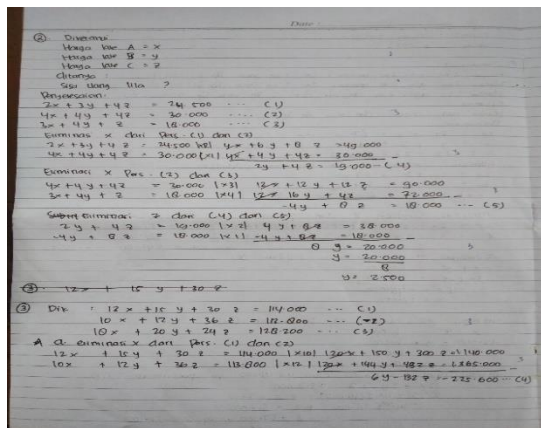 Date :
② Diketahui
Harga kue A = x
Harga kue B = y
Harga kue C = z
ditanya :
Sisa uang lila ?
Penyelesaian :
2x + 3y + 4z = 24.500 .... (1)
4x + 4y + 4z = 30.000 .... (2)
3x + 4y + z = 18.000 .... (3)
Eliminasi x dari Pers. (1) dan (2)
2x + 3y + 4z = 24.500 |x2| 4x + 6y + 8z = 49.000
4x + 4y + 4z = 30.000 |x1| 4x + 4y + 4z = 30.000 -
2y + 4z = 19.000 - (4)
Eliminasi x Pers. (2) dan (3)
4x + 4y + 4z = 30.000 |x3| 12x + 12y + 12z = 90.000
3x + 4y + z = 18.000 |x4| 12x 16y + 4z = 72.000 -
-4y + 8z = 18.000 ... (5)
Eliminasi z dari (4) dan (5)
2y + 4z = 19.000 |x2| 4y + 8z = 38.000
-4y + 8z = 18.000 |x1| -4y + 8z = 18.000 -
8 y = 20.000
y = 20.000
8
y = 2.500
③ 12x + 15 y + 30 z
③ Dik : 12x + 15y + 30z = 114.000 ... (1)
10x + 12y + 36z = ... (2)
18x + 20y + 24z = 128.200 ... (3)
eliminasi x dari Pers. (1) dan (2)
12x + 15y + 30z = 114.000 |x10| 120x + 150y + 300z = 1.140.000
10x + 12y + 36z = |x12| 120x + 144y + -
6y - 132z = -225.600 - (4)